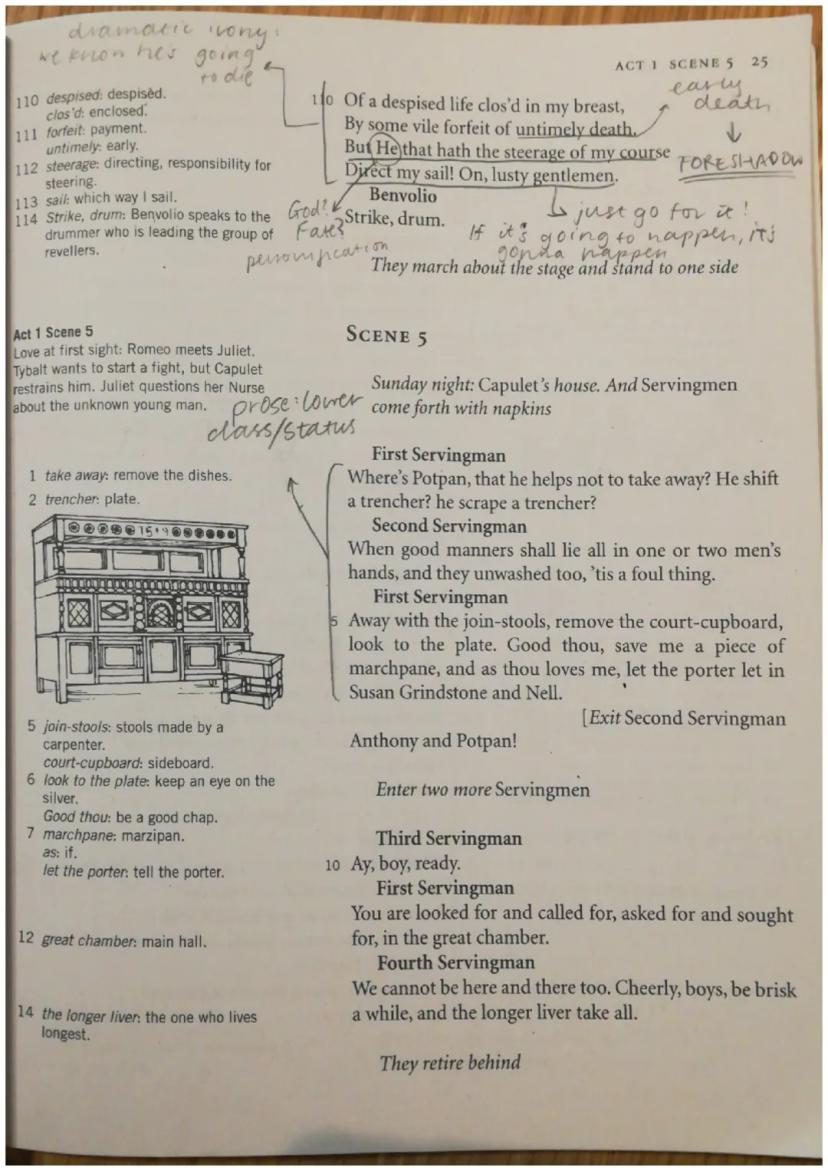 dramatic irony:
we know he's going
to die
ACT 1 SCENE 5 25
early
death
↓
FORESHADOW
110 despised: despisèd.
clos'd: enclosed.
111 forfeit: payment.
untimely: early.
112 steerage: directing, responsibility for
steering.
113 sail: which way I sail.
114 Strike, drum: Benvolio speaks to the
drummer who is leading the group of
revellers.
110 Of a despised life clos'd in my breast,
By some vile forfeit of untimely death.
But He that hath the steerage of my course
Direct my sail! On, lusty gentlemen.
Benvolio
Strike, drum.
God?
Fate?
personification
just go for it!
If it's going to happen, it's
gonna happen
They march about the stage and stand to one side
Act 1 Scene 5
Love at first sight: Romeo meets Juliet.
Tybalt wants to start a fight, but Capulet
restrains him. Juliet questions her Nurse
about the unknown young man.
prose: lower
class/status
SCENE 5
Sunday night: Capulet's house. And Servingmen
come forth with napkins
1 take away: remove the dishes.
2 trencher: plate.
15 9
First Servingman
Where's Potpan, that he helps not to take away? He shift
a trencher? he scrape a trencher?
Second Servingman
When good manners shall lie all in one or two men's
hands, and they unwashed too, 'tis a foul thing.
First Servingman
5 Away with the join-stools, remove the court-cupboard,
look to the plate. Good thou, save me a piece of
marchpane, and as thou loves me, let the porter let in
Susan Grindstone and Nell.
[Exit Second Servingman
Anthony and Potpan!
5 join-stools: stools made by a
carpenter.
court-cupboard: sideboard.
6 look to the plate: keep an eye on the
silver.
Good thou: be a good chap.
7 marchpane: marzipan.
as: if.
let the porter: tell the porter.
Enter two more Servingmen
Third Servingman
10 Ay, boy, ready.
First Servingman
You are looked for and called for, asked for and sought
for, in the great chamber.
Fourth Servingman
We cannot be here and there too. Cheerly, boys, be brisk
a while, and the longer liver take all.
12 great chamber: main hall.
14 the longer liver: the one who lives
longest.
They retire behind